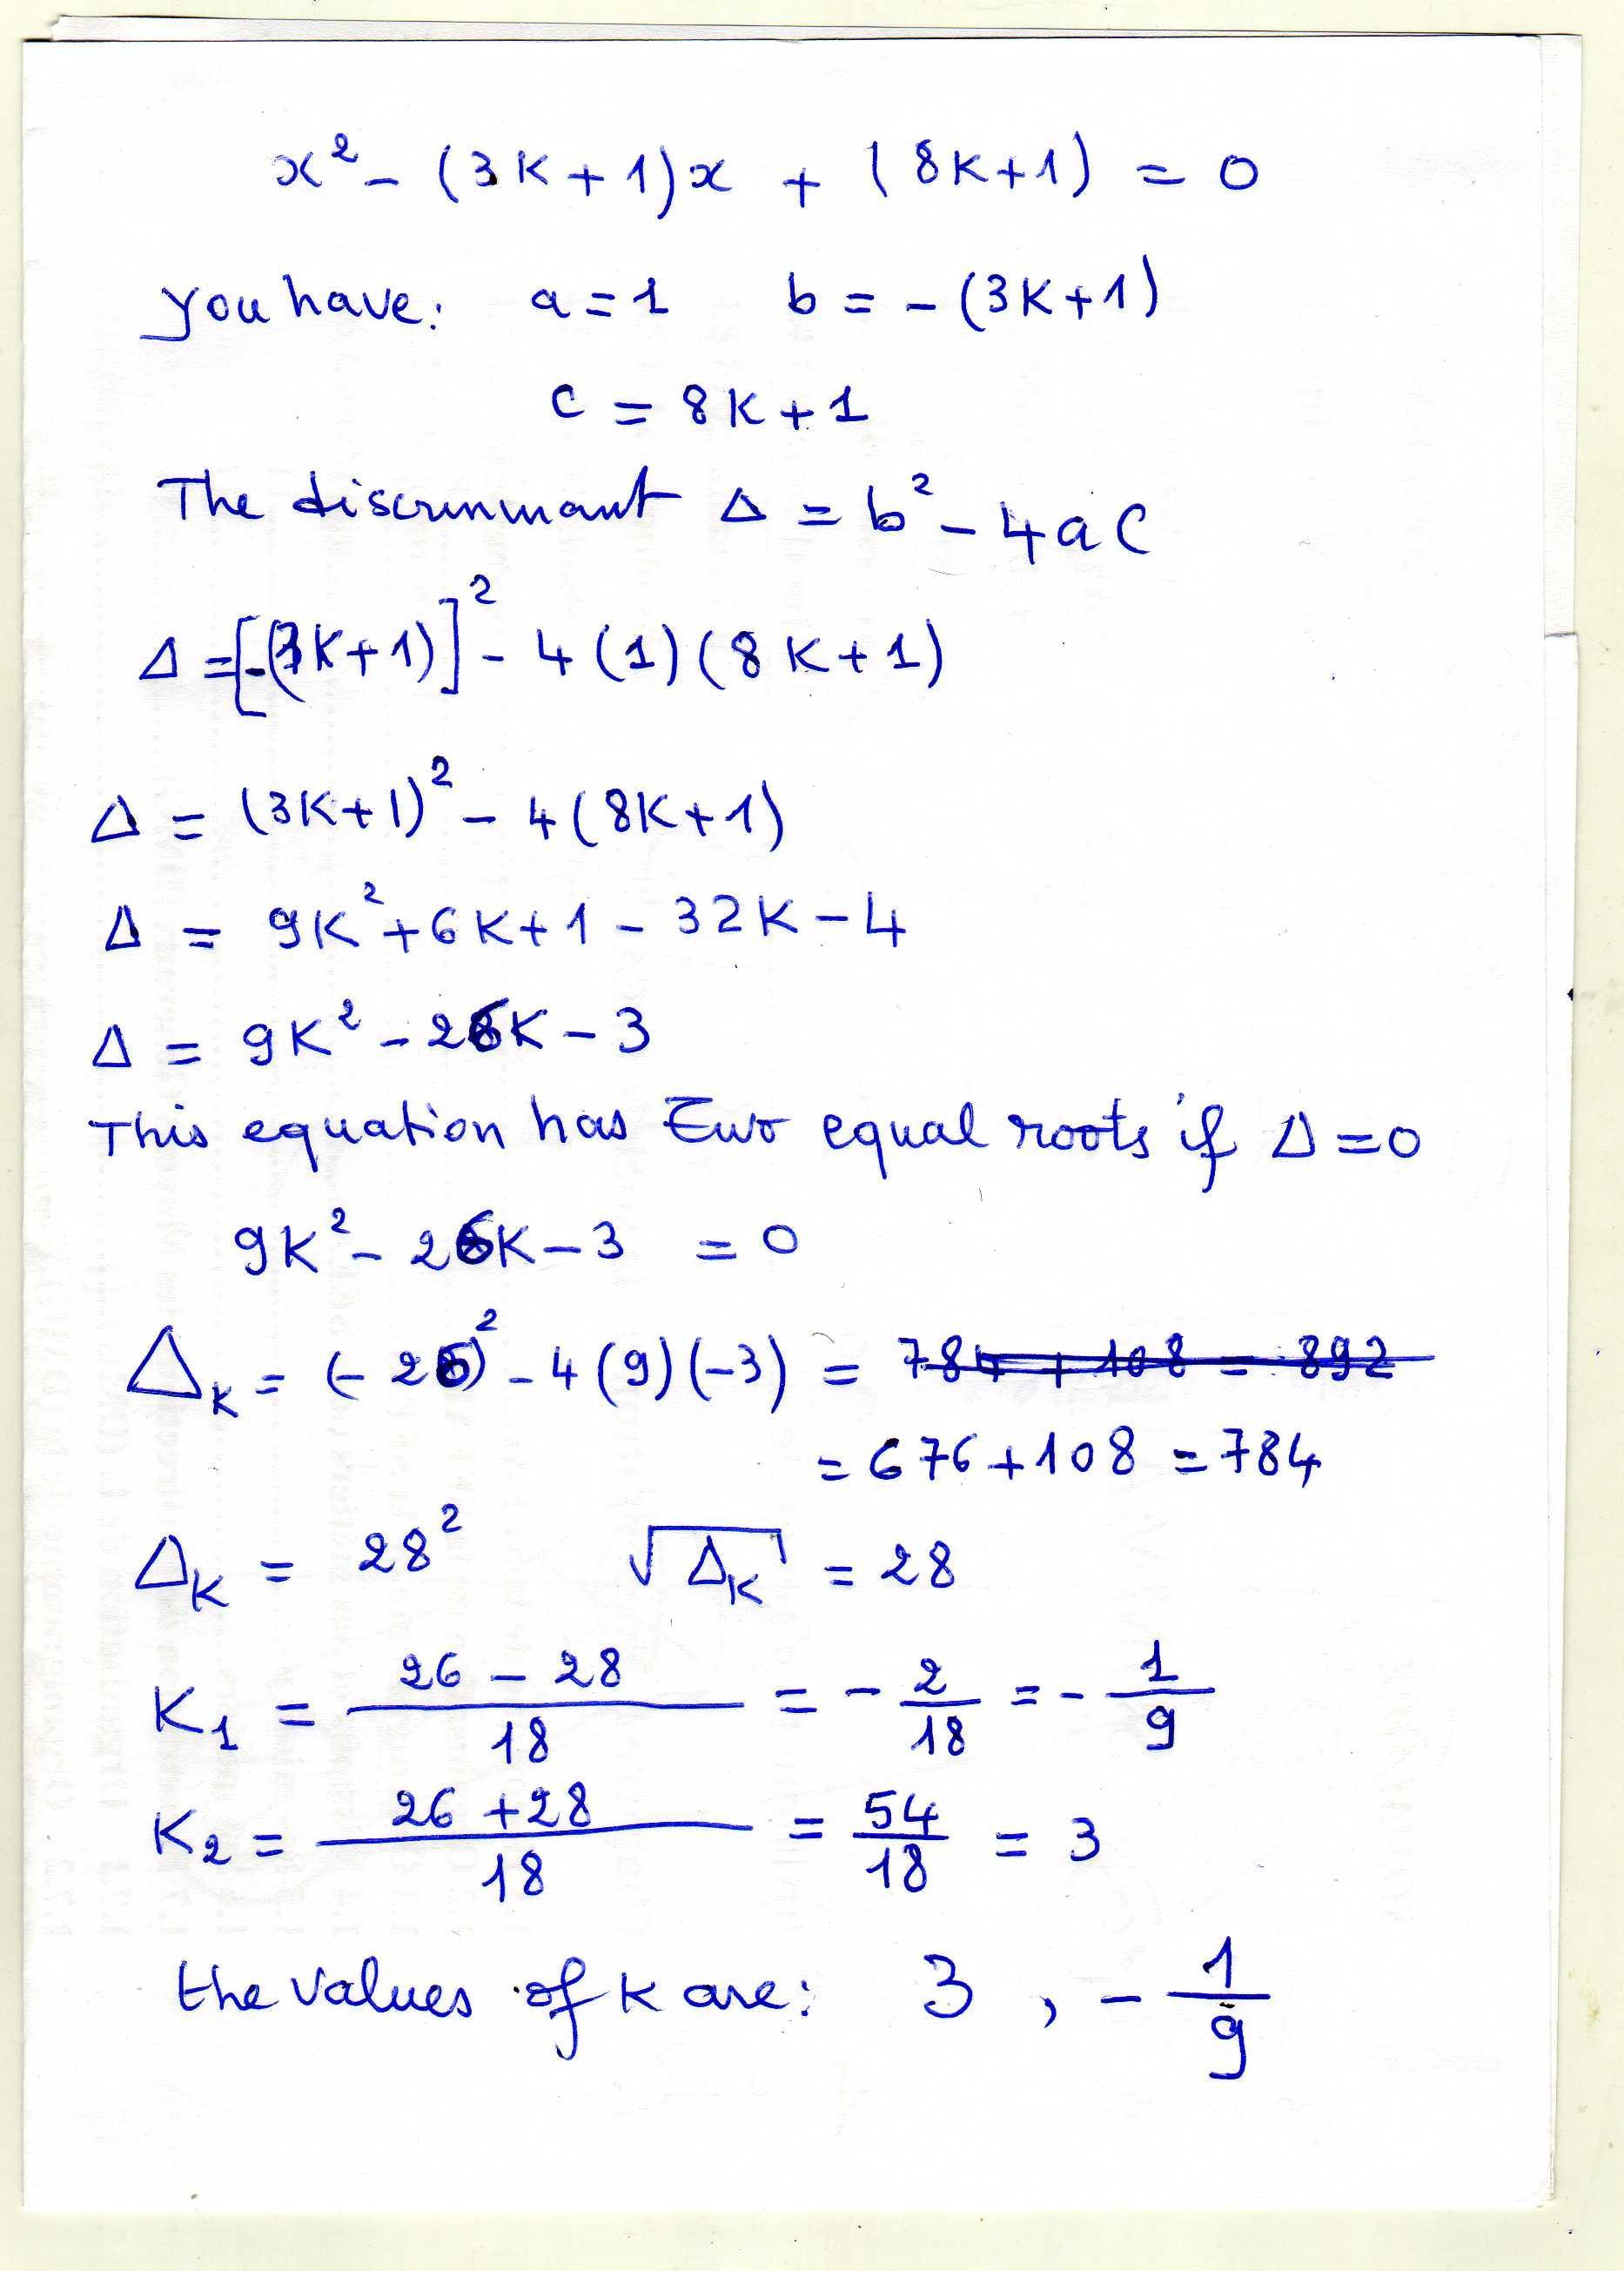 x² - (3K + 1)x + (8K+1) = 0
you have: a = 1 b = - (3K+1)
C = 8K+1
The discriminant Δ = b² - 4aC
Δ = [-(3K+1)]² - 4(1)(8K+1)
Δ = (3K+1)² - 4(8K+1)
Δ = 9K² + 6K + 1 - 32K - 4
Δ = 9K² - 26K - 3
This equation has two equal roots if Δ = 0
9K² - 26K - 3 = 0
Δ_K = (-26)² - 4(9)(-3) = 784 + 108 = 892
= 676 + 108 = 784
Δ_K = 28² √Δ_K = 28
K₁ = (26 - 28)/18 = - 2/18 = - 1/9
K₂ = (26 + 28)/18 = 54/18 = 3
the values of K are: 3 , - 1/9